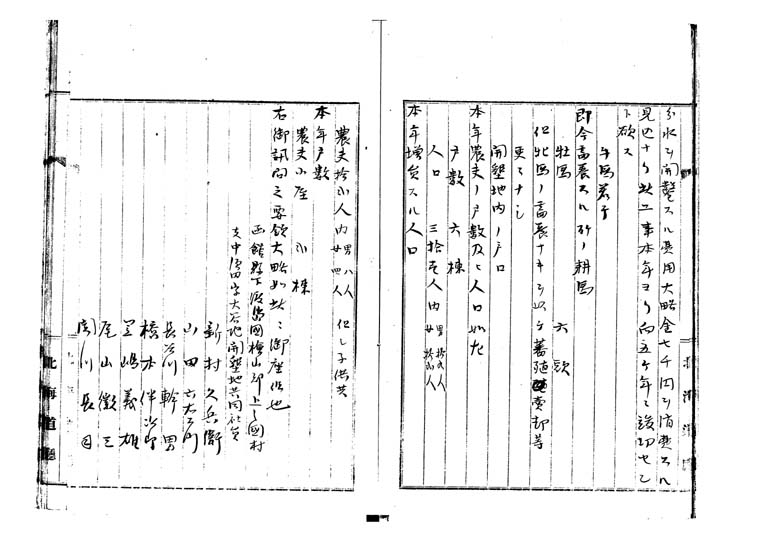 分水ヲ開鑿スル費用大略金七千円ヲ消費スル
見込ナリ此工事本年ヨリ向五ケ年ニ竣功セン
ト欲ス
牛馬若干
即今畜養スル所ノ耕馬
牡馬 六頭
但牝馬ノ畜養ナキヲ以テ蕃殖賣却等
更ニナシ
開墾地内ノ戸口
本年農夫ノ戸数及ヒ人口如左
戸数 六棟
人口 三拾壱人内 男 人 女 人
本年増員スル人口
農夫拾 人内 男八人 女四人 但シ子供共
本年戸数
農夫小屋 棟
右御訊問之要領大略如此ニ御座候也
函館縣下渡島國檜山郡上ノ國村
支中須田字大石地開墾地共同社員
新村久兵衛
山田六右衛門
長谷川幹男
橋本伴治郎
三嶋義雄
尾山徴三
関川長
北海道廳